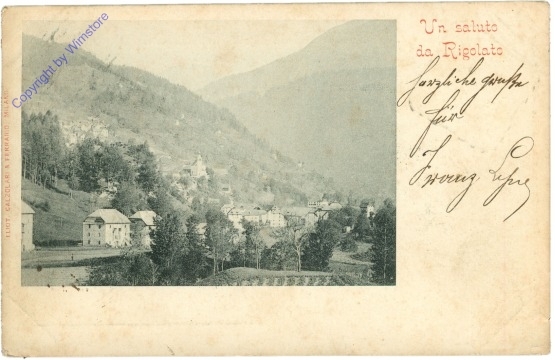 Un saluto
da Rigolato
Herzliche Grüße
für
Franz
ELIOT. CALZOLARI & FERRARIO. MILANO
Copyright by Wimstore